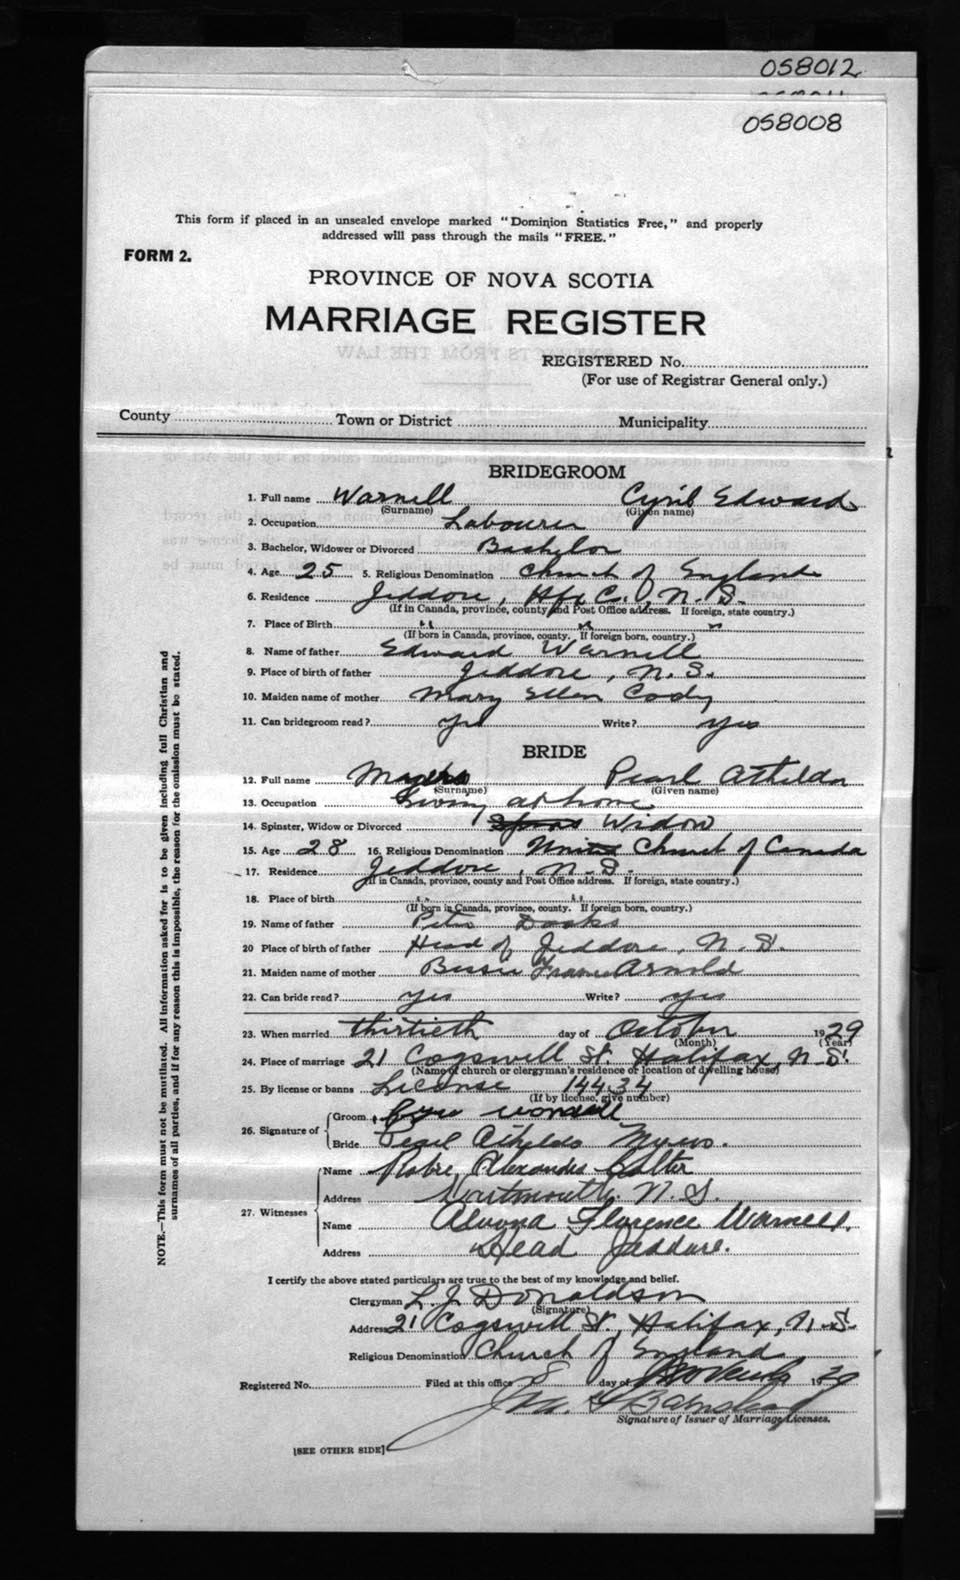 058012
058008
This form if placed in an unsealed envelope marked "Dominion Statistics Free," and properly
addressed will pass through the mails "FREE."
FORM 2.
PROVINCE OF NOVA SCOTIA
MARRIAGE REGISTER
REGISTERED No.
(For use of Registrar General only.)
County Town or District Municipality
BRIDEGROOM
1. Full name Warnell Cyril Edward
(Surname) (Given name)
2. Occupation Labourer
3. Bachelor, Widower or Divorced Bachelor
4. Age 25 5. Religious Denomination Church of England
6. Residence Jeddore, Hfx Co., N. S.
(If in Canada, province, county and Post Office address. If foreign, state country.)
7. Place of Birth " " "
(If born in Canada, province, county. If foreign born, country.)
8. Name of father Edward Warnell
9. Place of birth of father Jeddore, N. S.
10. Maiden name of mother Mary Ellen Cody
11. Can bridegroom read? yes Write? yes
BRIDE
12. Full name Pearl Athelda
(Surname) (Given name)
13. Occupation Living at home
14. Spinster, Widow or Divorced Widow
15. Age 28 16. Religious Denomination United Church of Canada
17. Residence Jeddore, N. S.
(If in Canada, province, county and Post Office address. If foreign, state country.)
18. Place of birth " "
(If born in Canada, province, county. If foreign born, country.)
19. Name of father Peter Dooks
20 Place of birth of father Head of Jeddore, N. S.
21. Maiden name of mother Bessie Arnold
22. Can bride read? yes Write? yes
23. When married thirtieth day of October 1929
(Month) (Year)
24. Place of marriage 21 Cogswell St. Halifax, N. S.
(Name of church or clergyman's residence or location of dwelling house)
25. By license or banns License 14434
(If by license, give number)
26. Signature of
Groom
Bride Pearl Athelda Myers.
27. Witnesses
Name Alexander Colter
Address Dartmouth. N. S.
Name Florence Warnell.
Address Head Jeddore.
I certify the above stated particulars are true to the best of my knowledge and belief.
Clergyman L. J. Donaldson
(Signature)
Address 21 Cogswell St., Halifax, N. S.
Religious Denomination Church of England
Registered No. Filed at this office 8 day of 19
Signature of Issuer of Marriage Licenses.
[SEE OTHER SIDE]
NOTE.—This form must not be mutilated. All information asked for is to be given including full Christian and
surnames of all parties, and if for any reason this is impossible, the reason for the omission must be stated.